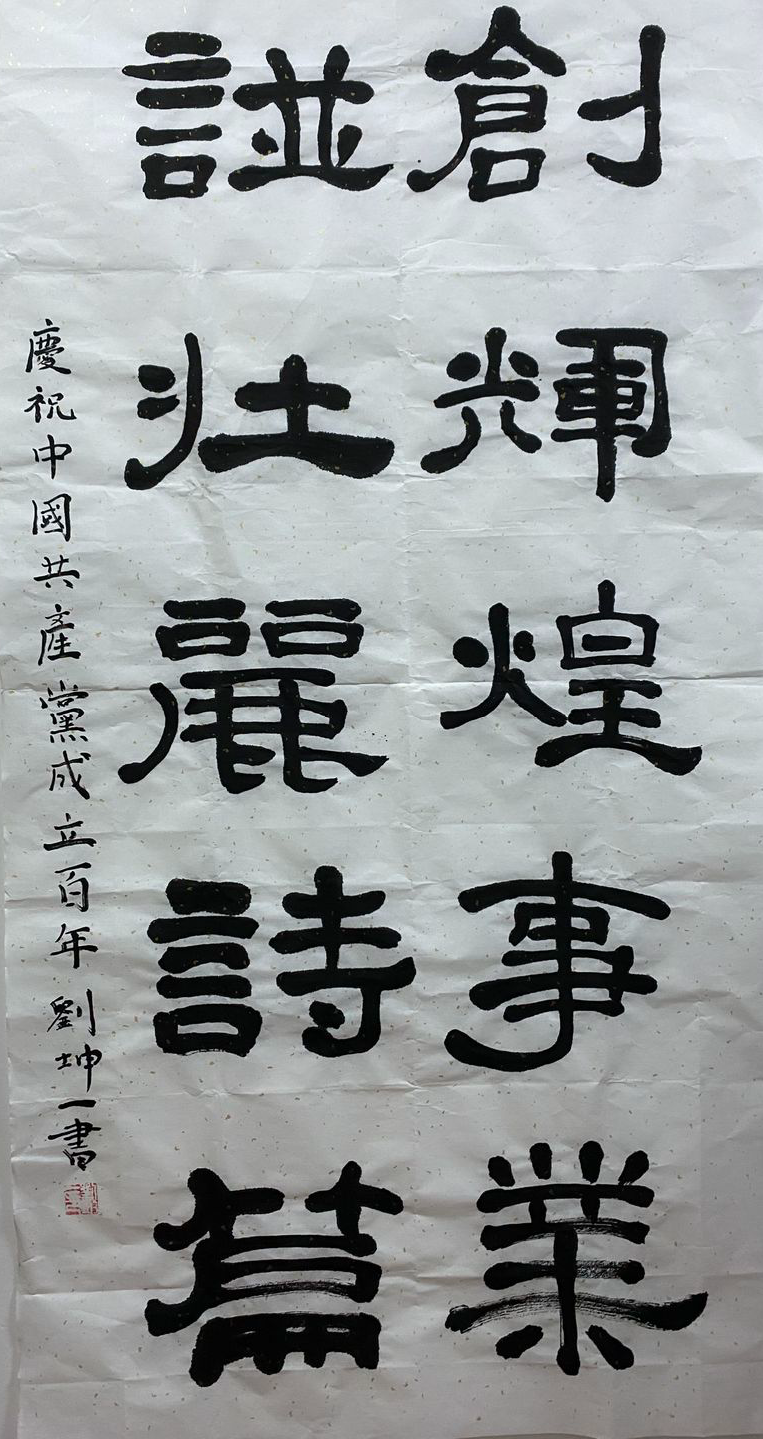 創輝煌事業
譜壯麗詩篇
慶祝中國共產黨成立百年 劉坤一書